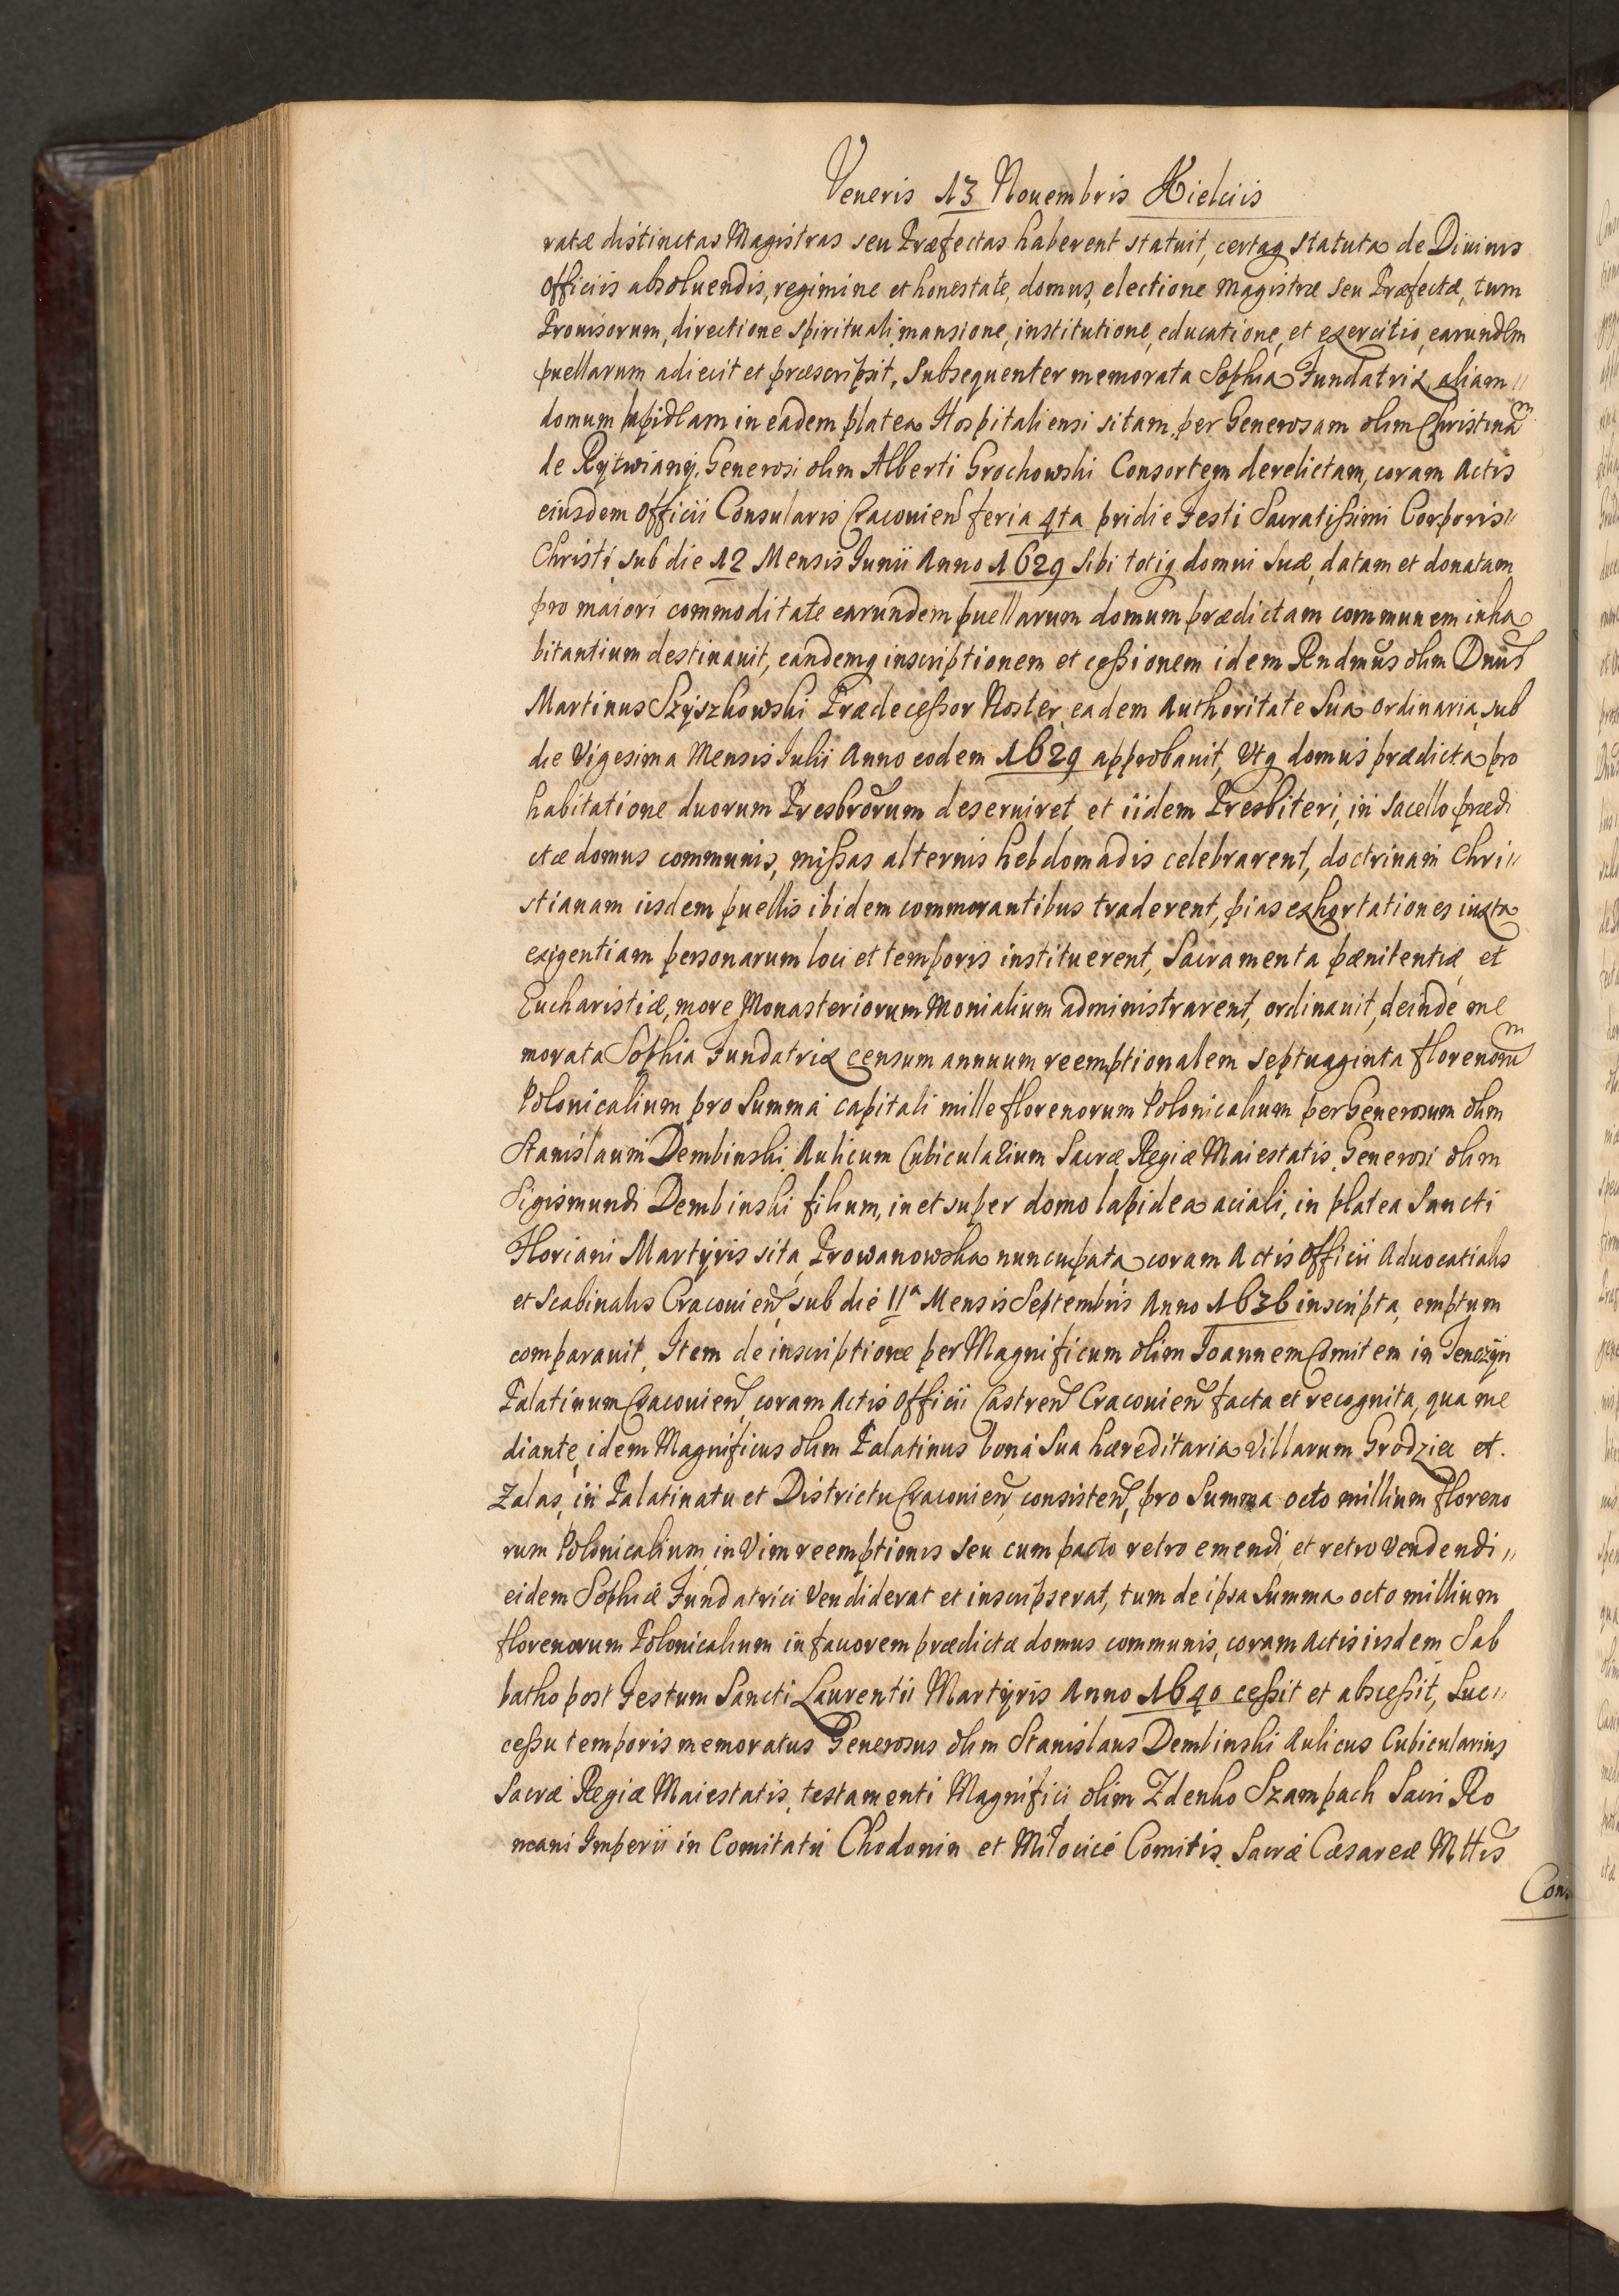 Veneris 13 Nouembris Kielciis
ratæ distinctas Magistras seu Præfectas haberent statuit, certaq statuta de Diuinis
Officiis absoluendis, regimine et honestate, domus, electione Magistræ seu Præfectæ, tum
Prouisorum, directione spirituali, mansione, institutione, educatione, et exercitio, earundem
puellarum adiecit et præscripsit, Subsequenter memorata Sophia Fundatrix aliam
domum lapideam in eadem platea Hospitaliensi sitam, per Generosam olim Christinam
de Rytwiany, Generosi olim Alberti Grochowski Consortem derelictam, coram Actis
eiusdem Officii Consularis Cracouien feria 4ta pridie Festi Sacratißimi Corporis
Christi sub die 12 Mensis Junii Anno 1629 sibi totiq domui suæ, datam et donatam
pro maiori commoditate earundem puellarum domum prædictam communem inha
bitantium destinauit, eandemq inscriptionem et ceßionem idem Rndmus olim Dnus
Martinus Szyszkowski Prædeceßor Noster, eadem Authoritate Sua ordinaria, sub
die Vigesima Mensis Julii Anno eodem 1629 approbauit, Vtq domus prædicta pro
habitatione duorum Presbrorum deseruiret, et iidem Presbiteri, in Sacello prædi
ctæ domus communis, mißas alternis hebdomadis celebrarent, doctrinam Chri
stianam iisdem puellis ibidem commorantibus traderent, pias exhortationes iuxta
exigentiam personarum loci et temporis instituerent, Sacramenta pænitentiæ, et
Eucharistiæ, more Monasteriorum Monialium administrarent, ordinauit, deinde me
morata Sophia Fundatrix censum annuum reemptionalem septuaginta florenorum
Polonicalium pro Summa capitali mille florenorum Polonicalium per Generosum olim
Stanislaum Dembinski Aulicum Cubicularium Sacræ Regiæ Maiestatis, Generosi olim
Sigismundi Dembinski filium, in et super domo lapidea aciali, in platea Sancti
Floriani Martyris sita, Prowanowska nuncupata coram Actis Officii Aduocatialis
et Scabinalis Cracouien, sub die 11a Mensis Septembris Anno 1636 inscripta, emptum
comparauit, Item de inscriptione per Magnificum olim Joannem Comitem in Tenczyn
Palatinum Cracouien, coram Actis Officii Castren Cracouien facta et recognita, qua me
diante, idem Magnificus olim Palatinus bona Sua hæreditaria Villarum Grodziec et
Zalas, in Palatinatu et Districtu Cracouien, consisten, pro Summa octo millium floreno
rum Polonicalium, in Vim reemptionis seu cum pacto retro emendi, et retro vendendi
eidem Sophiæ Fundatrici Vendiderat et inscripserat, tum de ipsa Summa octo millium
florenorum Polonicalium in fauorem prædictæ domus communis, coram Actis iisdem Sab
batho post Festum Sancti Laurentii Martyris Anno 1640 ceßit et absceßit, Suc
ceßu temporis memoratus Generosus olim Stanislaus Dembinski Aulicus Cubicularius
Sacræ Regiæ Maiestatis, testamenti Magnifici olim Zdenko Szampach Sacri Ro
mani Imperii in Comitatu Chodonin et Milocicé Comitis, Sacræ Cæsareæ Mttis
Con